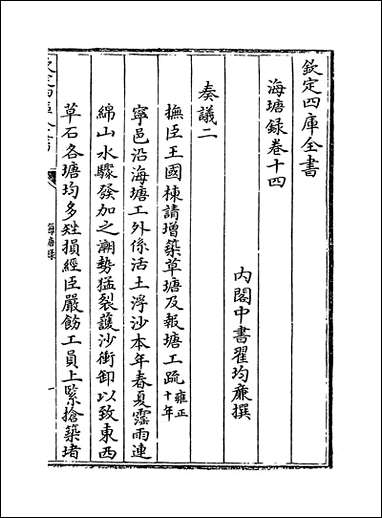 欽定四庫全書
海塘録卷十四
內閣中書翟均廉撰
奏議二
撫臣王國棟請增築草塘及報塘工疏雍正十年
寧邑沿海塘工外係活土浮沙本年春夏霪雨連
綿山水驟發加之潮勢猛裂護沙衝卸以致東西
草石各塘均多坍損經臣嚴飭工員上緊搶築堵
海塘録
一